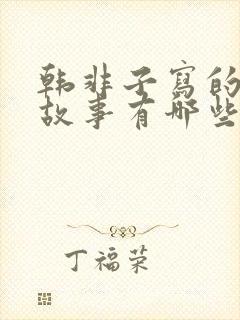 韩非子寫的
故事有哪些
丁福荣